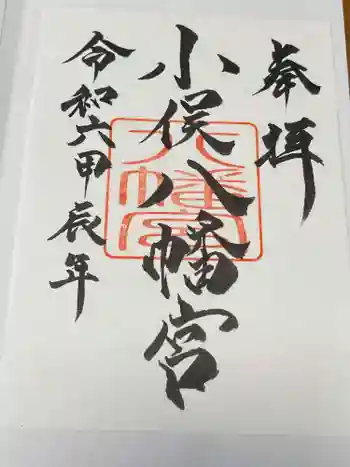 奉拝
小俣八幡宮
八幡宮
令和六甲辰年